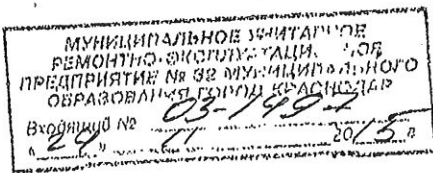 МУНИЦИПАЛЬНОЕ УНИТАРНОЕ
РЕМОНТНО-ЭКСПЛУАТАЦИОННОЕ
ПРЕДПРИЯТИЕ № 32 МУНИЦИПАЛЬНОГО
ОБРАЗОВАНИЯ ГОРОД КРАСНОДАР
Входящий № 03-1497
"24" 11 2015 г